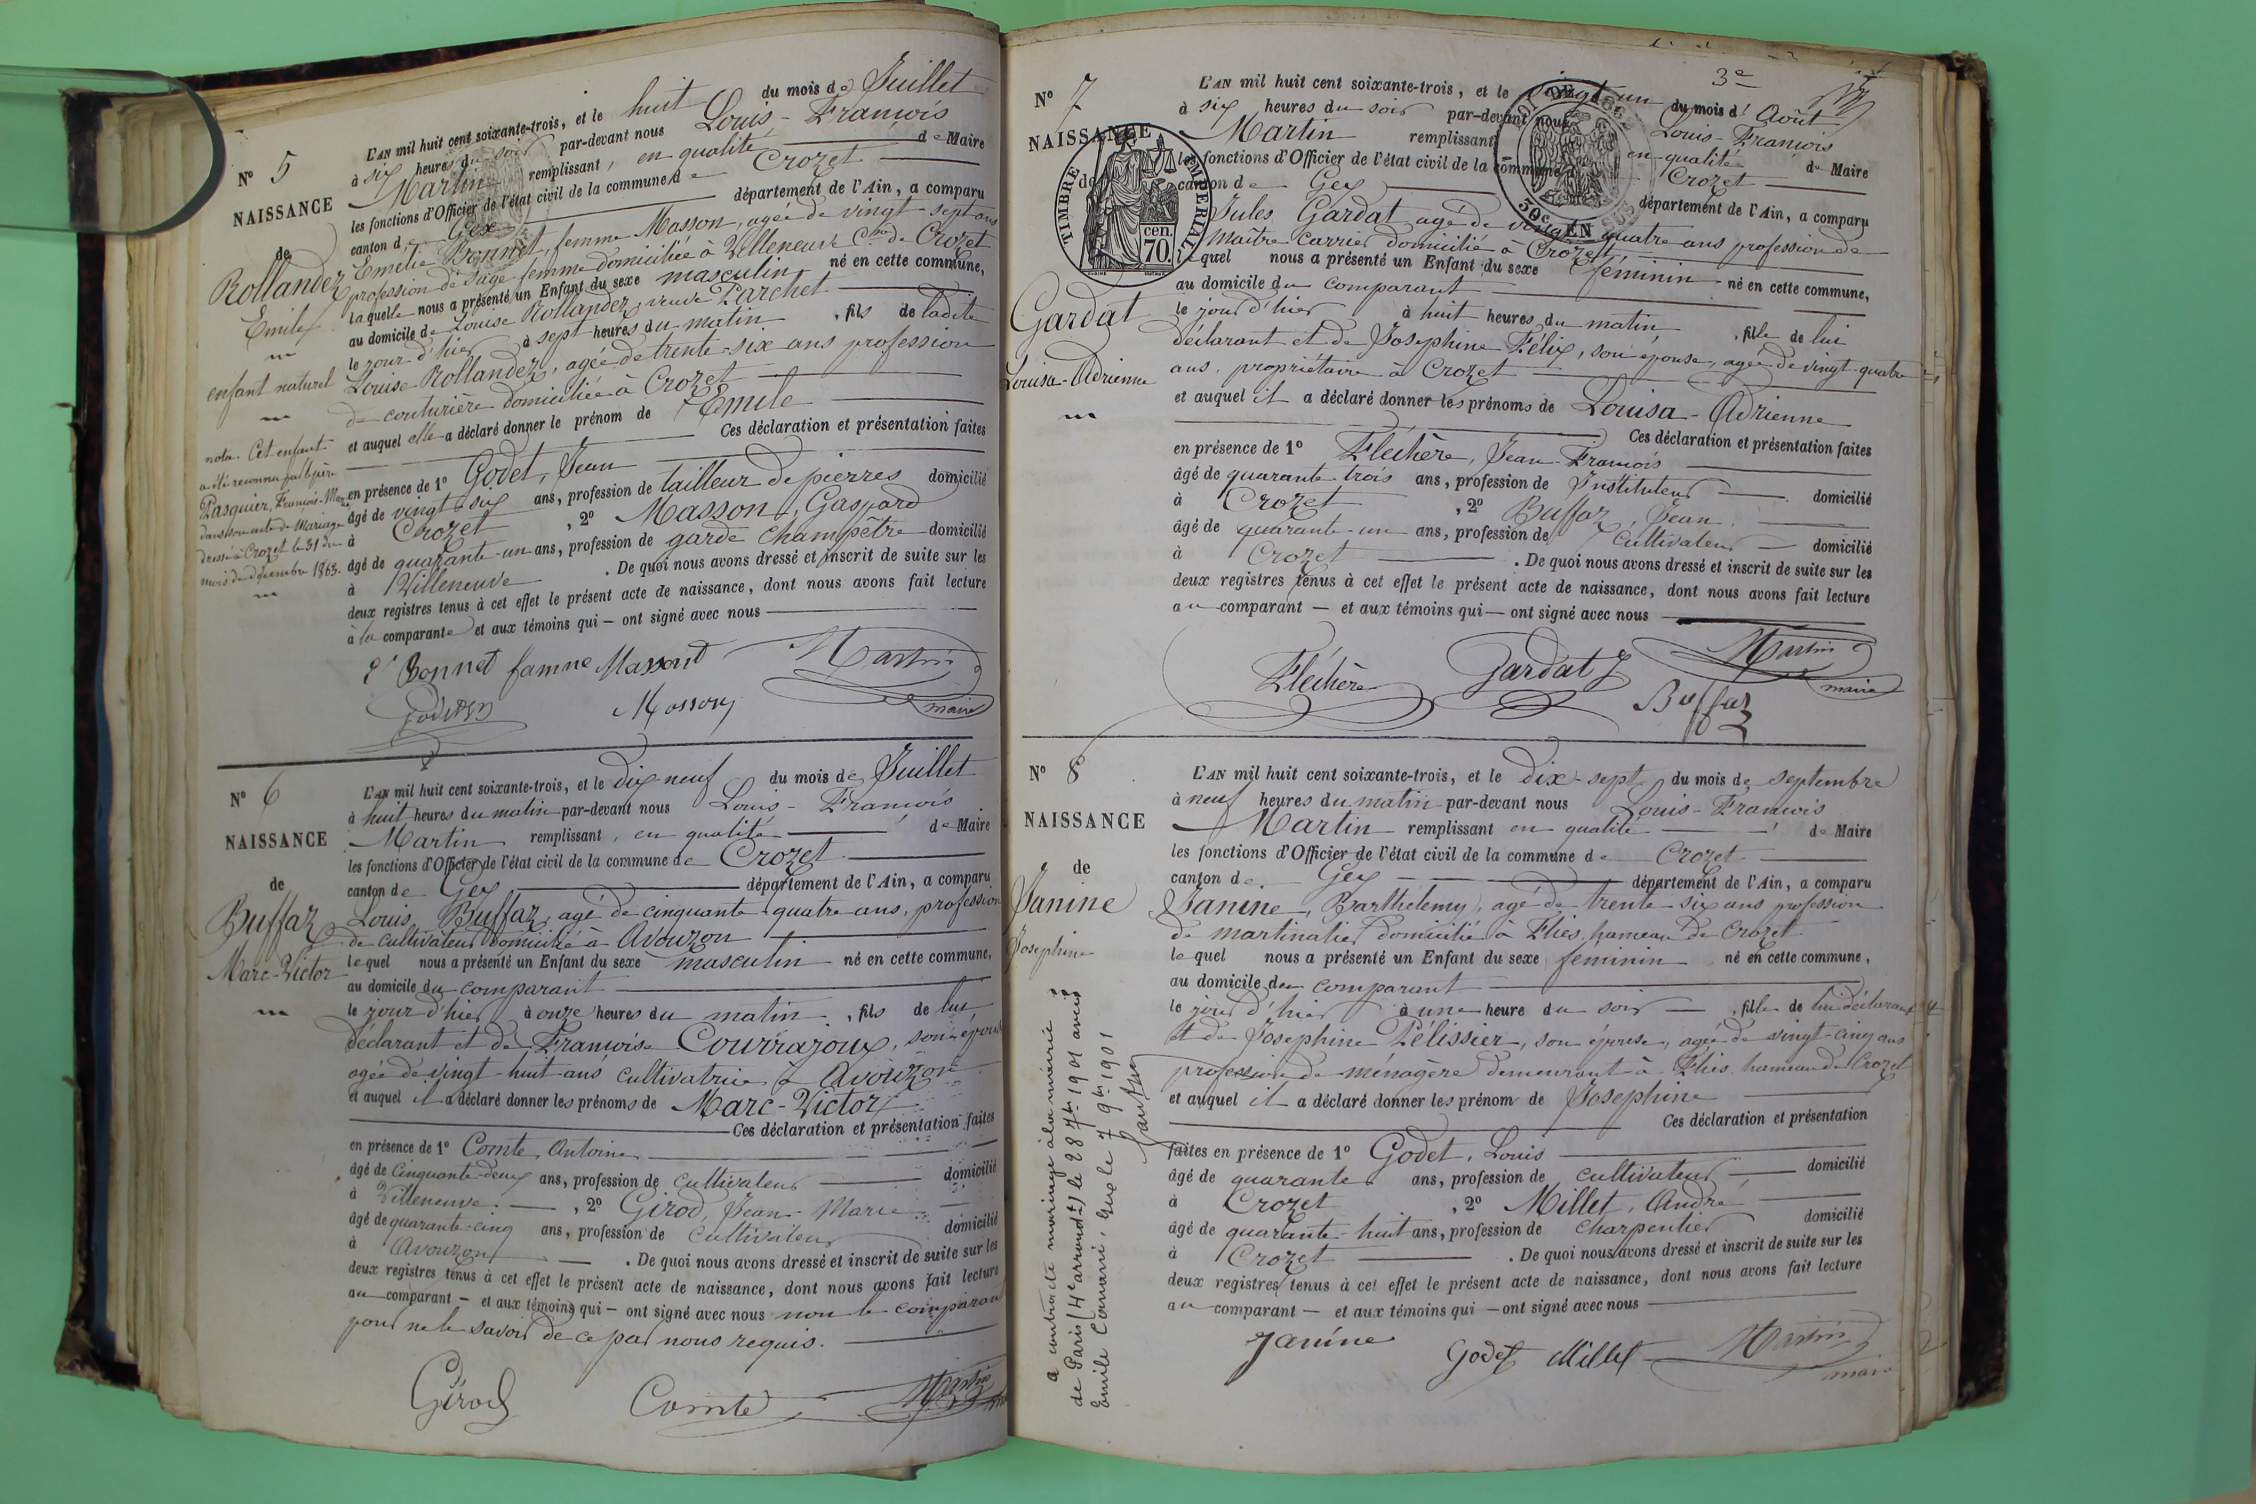 N° 5
NAISSANCE
de
Rollandez
Emile
enfant naturel
nota. Cet enfant
a été reconnu par le père
Pasquier, François-Marie
dans son acte de Mariage
dressé à Crozet le 31 du
mois de décembre 1863.
L'AN mil huit cent soixante-trois, et le huit du mois de Juillet
à six heures du soir par-devant nous Louis-François
Martin remplissant, en qualité de Maire
les fonctions d'Officier de l'état civil de la commune de Crozet
canton de Gex département de l'Ain, a comparu
Emélie Bonnet, femme Masson, agée de vingt-sept ans
profession de sage-femme domiciliée à Villeneuve Cne de Crozet
laquelle nous a présenté un Enfant du sexe masculin né en cette commune,
au domicile de Louise Rollandez, veuve Parchet
le jour d'hier à sept heures du matin, fils de ladite
Louise Rollandez, agée de trente-six ans profession
de couturière domiciliée à Crozet
et auquel elle a déclaré donner le prénom de Emile
Ces déclaration et présentation faites
en présence de 1° Godet, Jean
âgé de vingt-six ans, profession de tailleur de pierres domicilié
à Crozet, 2° Masson, Gaspard
âgé de quarante-un ans, profession de garde champêtre domicilié
à Villeneuve. De quoi nous avons dressé et inscrit de suite sur les
deux registres tenus à cet effet le présent acte de naissance, dont nous avons fait lecture
à la comparante et aux témoins qui – ont signé avec nous
E Bonnet famne Massont Martin
Masson maire
N° 6
NAISSANCE
de
Buffaz
Marc-Victor
L'AN mil huit cent soixante-trois, et le dix neuf du mois de Juillet
à huit heures du matin par-devant nous Louis-François
Martin remplissant, en qualité de Maire
les fonctions d'Officier de l'état civil de la commune de Crozet
canton de Gex département de l'Ain, a comparu
Louis Buffaz, agé de cinquante quatre ans, profession
de cultivateur domicilié à Avouzon
lequel nous a présenté un Enfant du sexe masculin né en cette commune,
au domicile du comparant
le jour d'hier à onze heures du matin, fils de lui
déclarant et de Françoise Courrajoux, son épouse
agée de vingt-huit ans cultivatrice à Avouzon
et auquel il a déclaré donner les prénoms de Marc-Victor
Ces déclaration et présentation faites
en présence de 1° Comte, Antoine
âgé de cinquante-deux ans, profession de cultivateur domicilié
à Villeneuve, 2° Girod, Jean-Marie
âgé de quarante-cinq ans, profession de cultivateur domicilié
à Avouzon. De quoi nous avons dressé et inscrit de suite sur les
deux registres tenus à cet effet le présent acte de naissance, dont nous avons fait lecture
au comparant – et aux témoins qui – ont signé avec nous non le comparant
pour ne le savoir de ce par nous requis.
Girod Comte Martin
3e
N° 7
NAISSANCE
de
TIMBRE IMPERIAL
70 cen.
50c. EN SUS
Gardat
Louisa-Adrienne
L'AN mil huit cent soixante-trois, et le vingt un du mois d'Août
à six heures du soir par-devant nous Louis-François
Martin remplissant en qualité de Maire
les fonctions d'Officier de l'état civil de la commune de Crozet
canton de Gex département de l'Ain, a comparu
Jules Gardat agé de vingt quatre ans profession de
maître carrier domicilié à Crozet
lequel nous a présenté un Enfant du sexe féminin né en cette commune,
au domicile du comparant
le jour d'hier à huit heures du matin, fille de lui
déclarant et de Josephine Félix, son épouse, agée de vingt-quatre
ans, propriétaire à Crozet
et auquel il a déclaré donner les prénoms de Louisa-Adrienne
Ces déclaration et présentation faites
en présence de 1° Fléchère, Jean-François
âgé de quarante trois ans, profession de Instituteur domicilié
à Crozet, 2° Buffaz, Jean
âgé de quarante-un ans, profession de cultivateur domicilié
à Crozet. De quoi nous avons dressé et inscrit de suite sur les
deux registres tenus à cet effet le présent acte de naissance, dont nous avons fait lecture
au comparant – et aux témoins qui – ont signé avec nous
Fléchère Gardat J Martin
Buffaz maire
N° 8
NAISSANCE
de
Janine
Josephine
a contracté mariage à la mairie
de Paris (4e arrondt) le 28 7bre 1901 avec
Emile Comani, Gex le 7 9bre 1901
L'AN mil huit cent soixante-trois, et le dix-sept du mois de septembre
à neuf heures du matin par-devant nous Louis-François
Martin remplissant en qualité de Maire
les fonctions d'Officier de l'état civil de la commune de Crozet
canton de Gex département de l'Ain, a comparu
Janine, Barthélemy, agé de trente-six ans profession
de martinatier domicilié à Flies, hameau de Crozet
lequel nous a présenté un Enfant du sexe féminin né en cette commune,
au domicile du comparant
le jour d'hier à une heure du soir, fille de lui déclarant
et de Josephine Pélissier, son épouse, agée de vingt-cinq ans
profession de ménagère demeurant à Flies hameau de Crozet
et auquel il a déclaré donner les prénom de Josephine
Ces déclaration et présentation
faites en présence de 1° Godet, Louis
âgé de quarante ans, profession de cultivateur domicilié
à Crozet, 2° Millet, André
âgé de quarante-huit ans, profession de charpentier domicilié
à Crozet. De quoi nous avons dressé et inscrit de suite sur les
deux registres tenus à cet effet le présent acte de naissance, dont nous avons fait lecture
au comparant – et aux témoins qui – ont signé avec nous
Janine Godet Millet Martin
maire